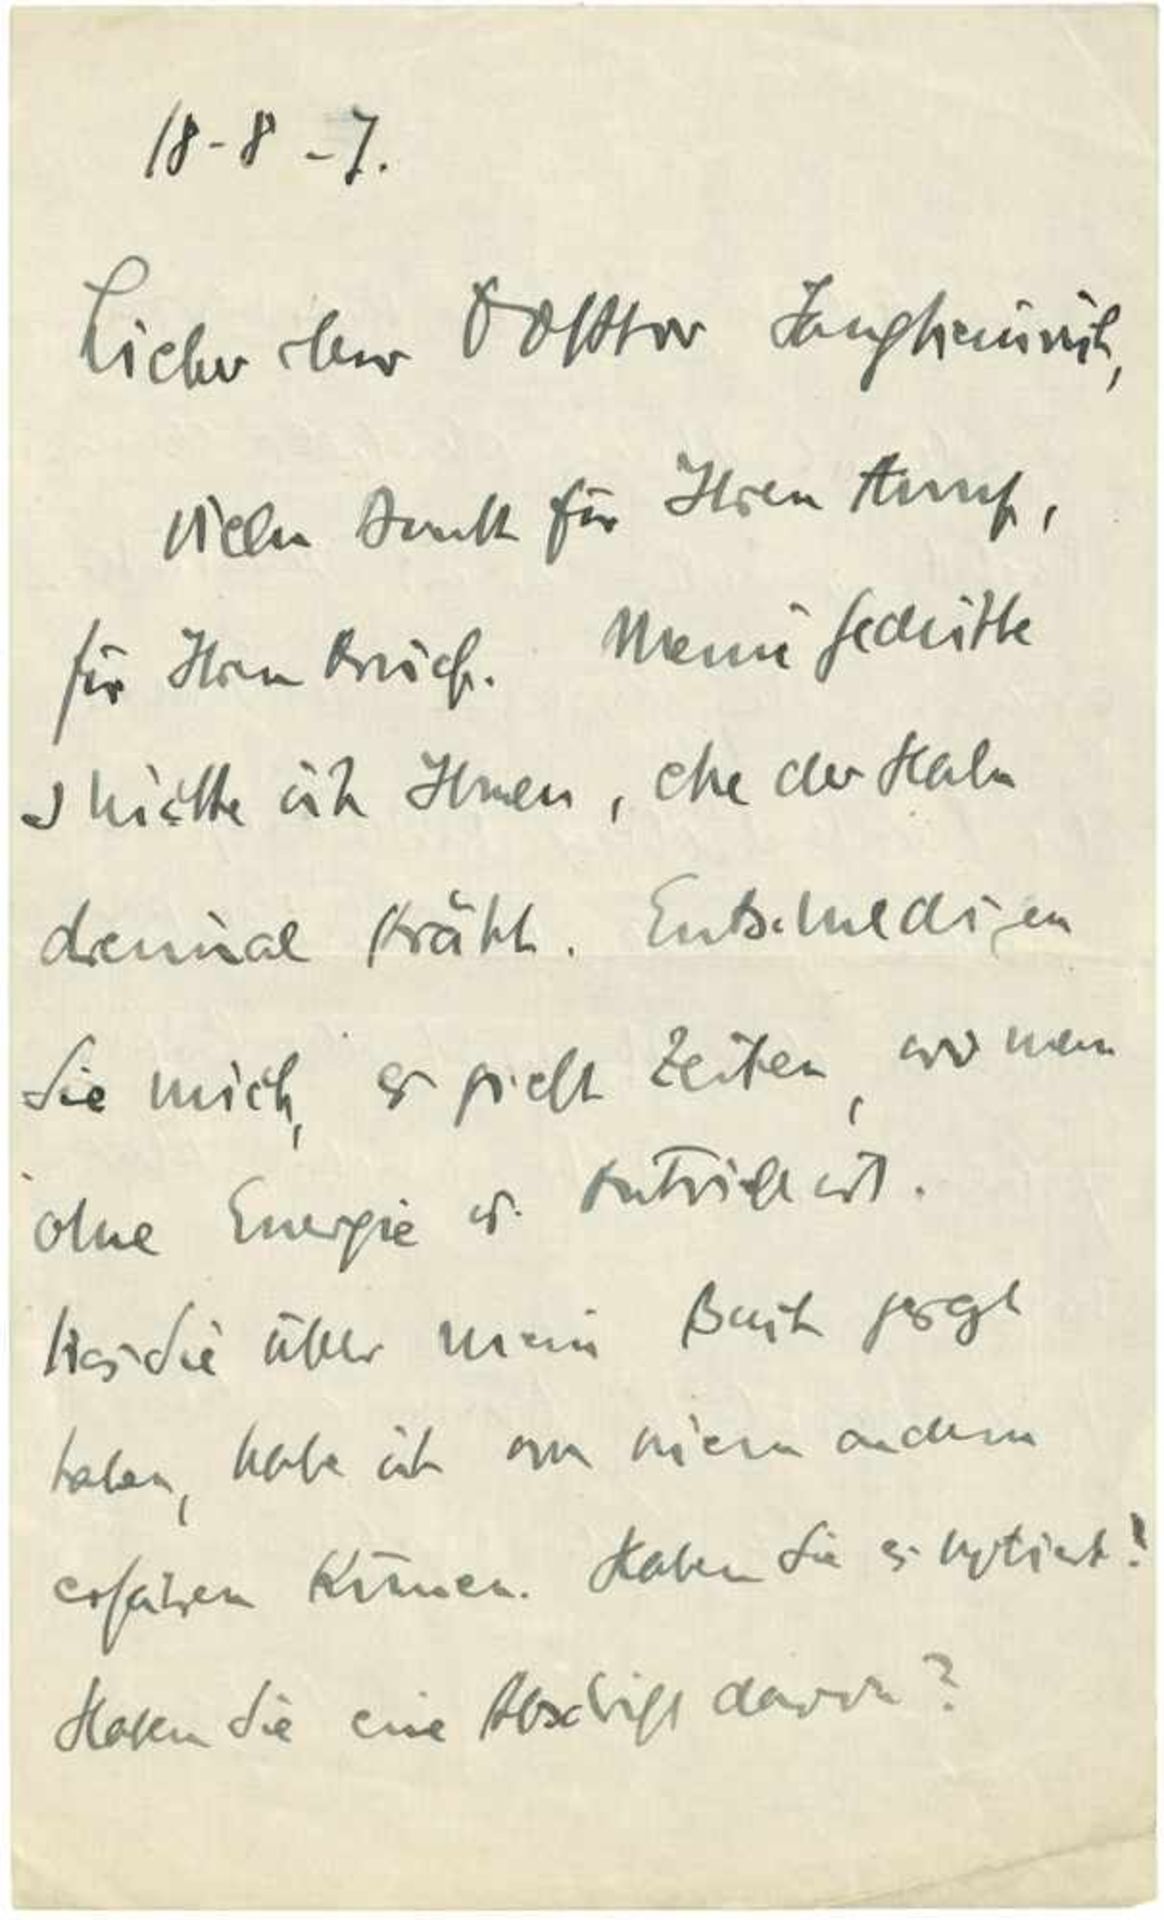 18-8-7.
Lieber Herr Doktor Jungheinrich,
vielen Dank für Ihren Anruf,
für Ihren Brief. Meine Gedichte
schickte ich Ihnen, ehe der Hahn
dreimal kräht. Entschuldigen
Sie mich, es giebt Zeiten, wo man
ohne Energie u. Antrieb ist.
Was Sie über mein Buch gesagt
haben, habe ich von einem andern
erfahren können. Haben Sie es notiert?
Haben Sie eine Abschrift davon?